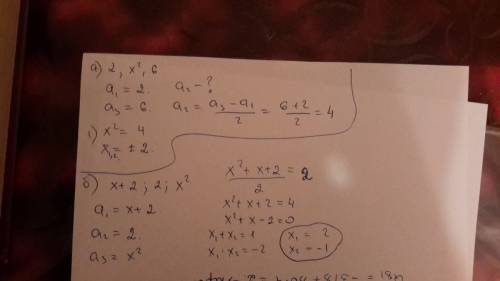 а) 2, x², 6
a₁ = 2.
a₃ = 6.
a₂ - ?
a₂ = (a₃ - a₁)/2 = (6+2)/2 = 4
1) x² = 4
x₁,₂ = ± 2.
б) x+2 ; 2; x²
a₁ = x+2
a₂ = 2.
a₃ = x²
(x² + x + 2)/2 = 2
x² + x + 2 = 4
x² + x - 2 = 0
x₁ + x₂ = 1
x₁ · x₂ = -2
x₁ = 2
x₂ = -1